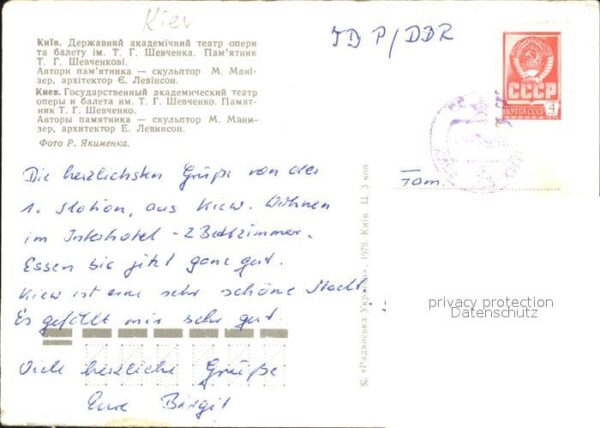 Kiev
Київ. Державний академічний театр опери
та балету ім. Т. Г. Шевченка. Пам'ятник
Т. Г. Шевченкові.
Автори пам'ятника — скульптор М. Мані-
зер, архітектор Є. Левінсон.
Киев. Государственный академический театр
оперы и балета им. Т. Г. Шевченко. Памят-
ник Т. Г. Шевченко.
Авторы памятника — скульптор М. Мани-
зер, архитектор Е. Левинсон.
Фото Р. Якименка.
P/DDR
СССР
ПОЧТА СССР
4
Fam.
Die herzlichsten Grüße von der
1. Station, aus Kiew. Wohnen
im Interhotel - 2 Bettzimmer.
Essen bis jetzt ganz gut.
Kiew ist eine sehr schöne Stadt
Es gefällt mir sehr gut.
Viele herzliche Grüße
Eure Birgit
К. «Радянська Україна». 1979. Київ. Ц. 3 коп
privacy protection
Datenschutz